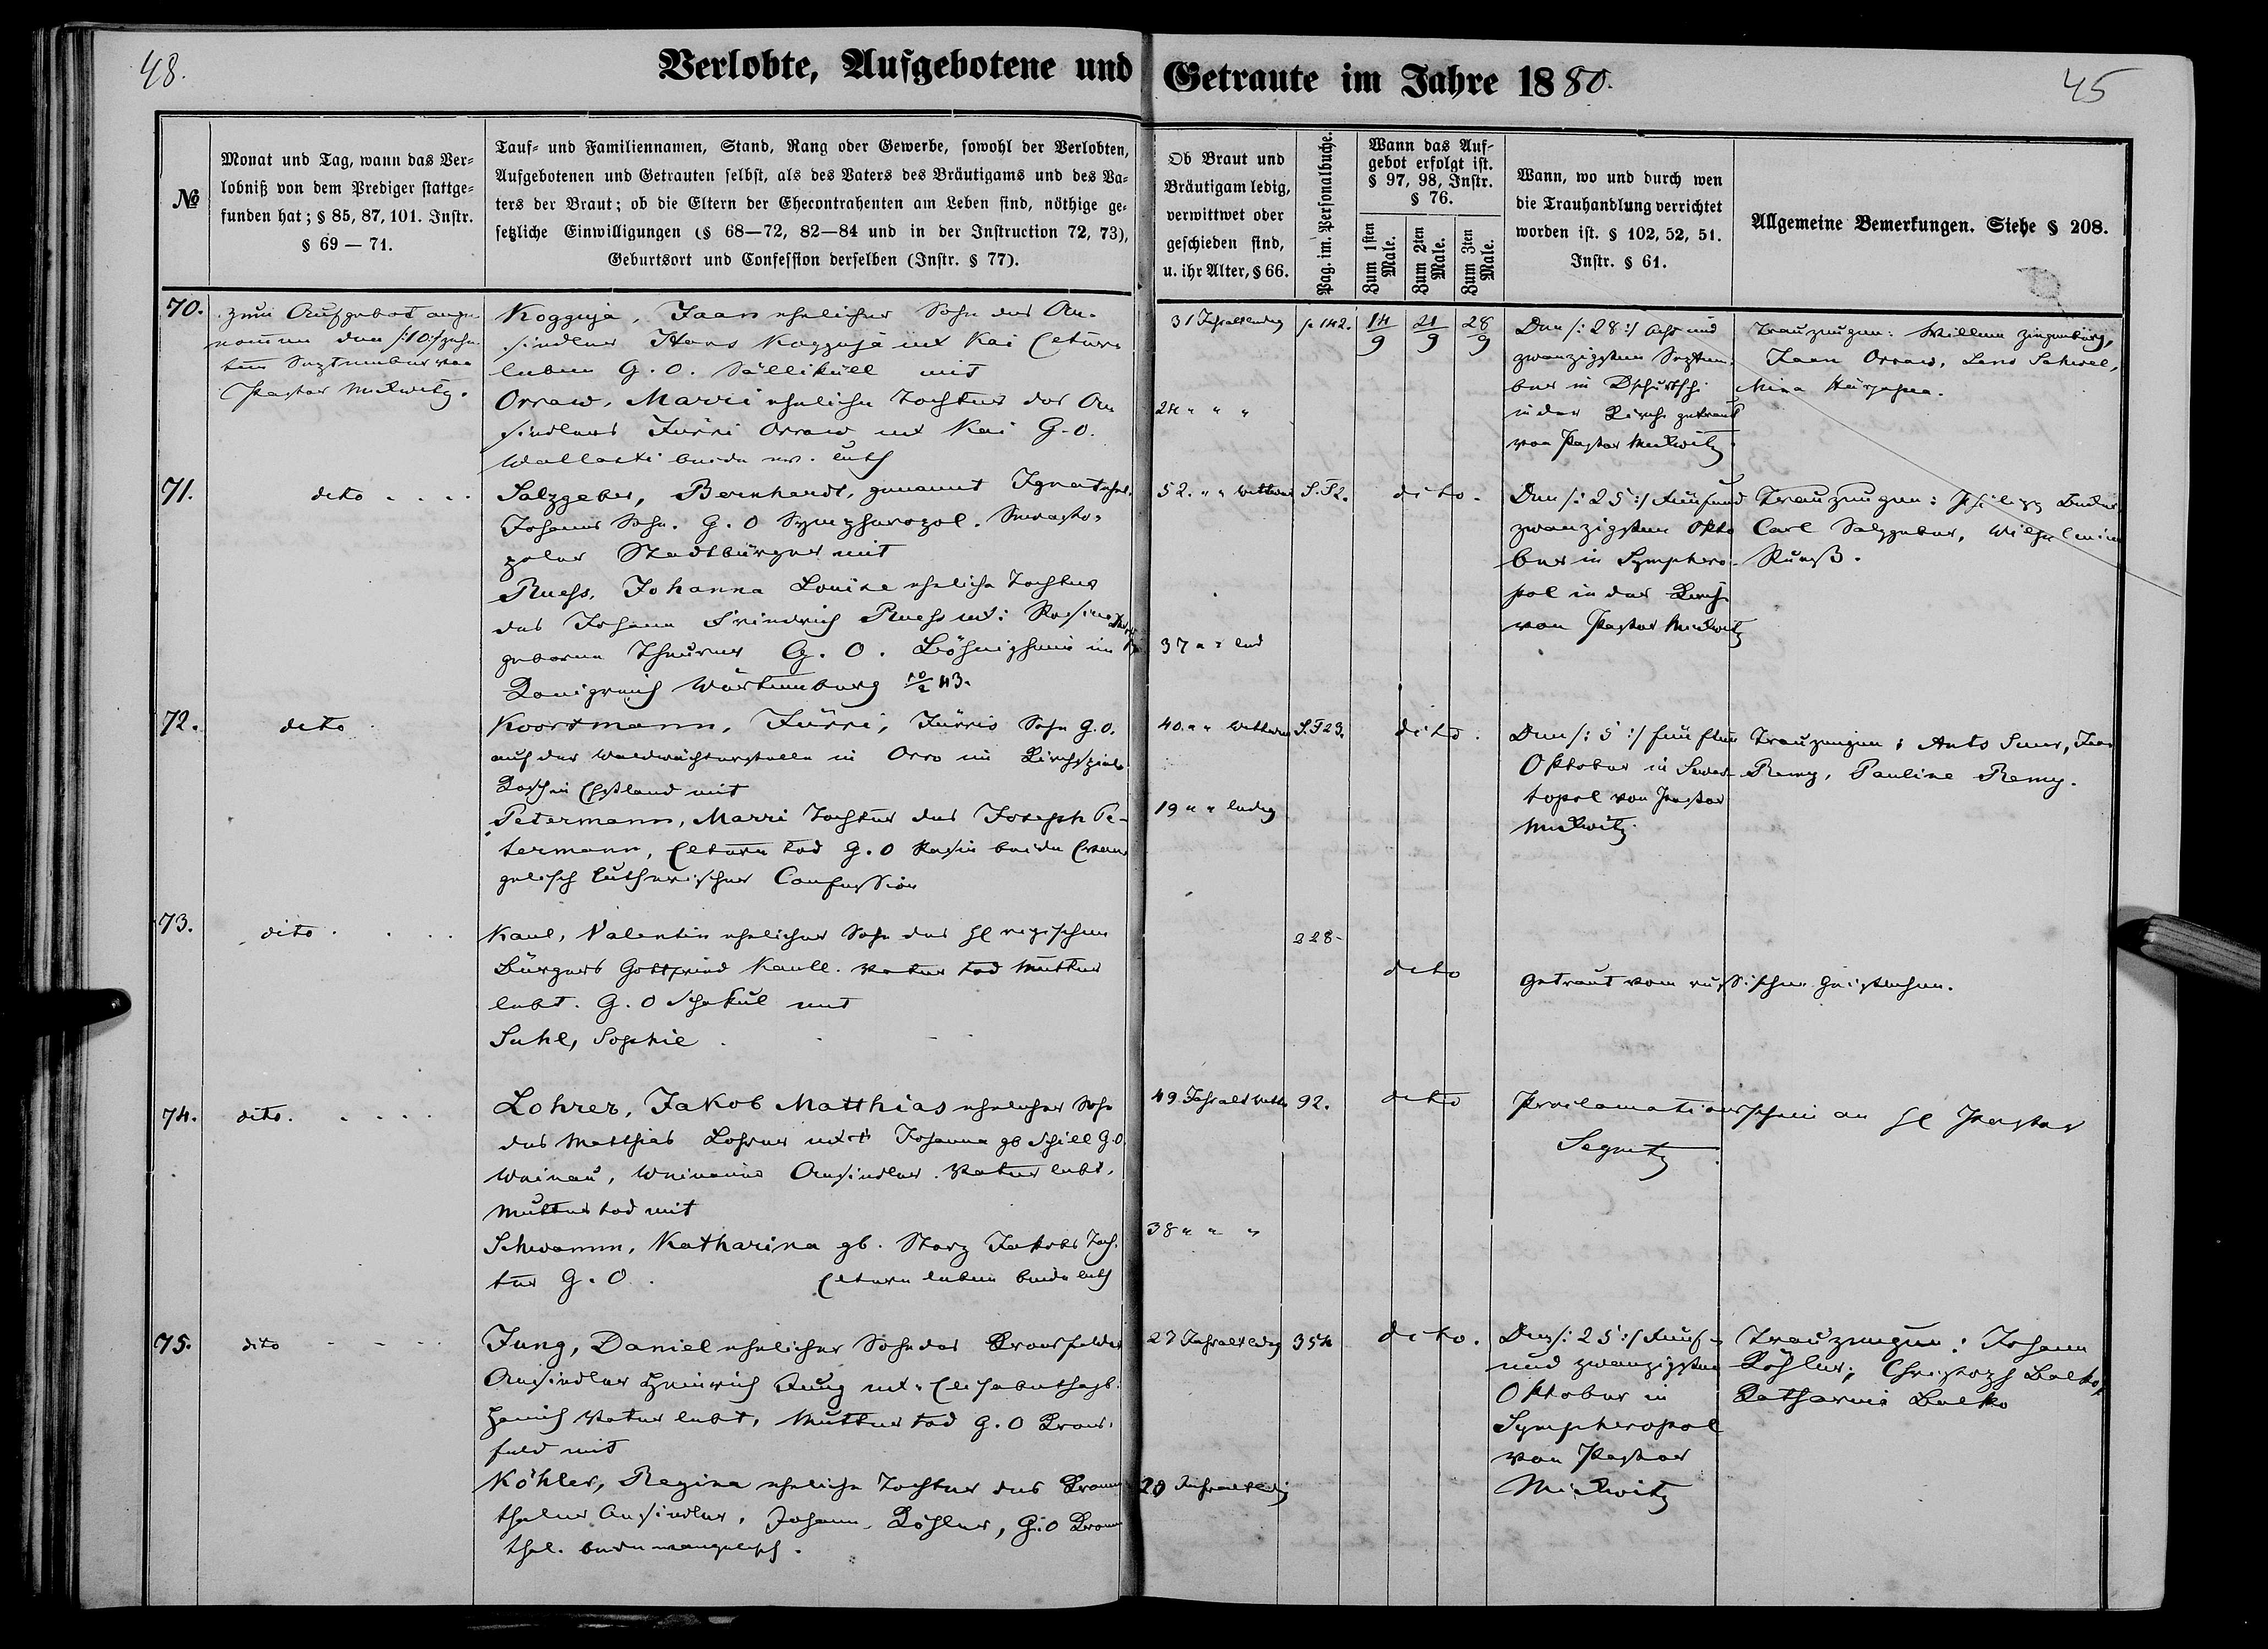 48.
Verlobte, Aufgebotene und Getraute im Jahre 1880.
45
№
Monat und Tag, wann das Ver-
lobniß von dem Prediger stattge-
funden hat; § 85, 87, 101. Instr.
§ 69 — 71.
Tauf- und Familiennamen, Stand, Rang oder Gewerbe, sowohl der Verlobten,
Aufgebotenen und Getrauten selbst, als des Vaters des Bräutigams und des Va-
ters der Braut; ob die Eltern der Ehecontrahenten am Leben sind, nöthige ge-
setzliche Einwilligungen (§ 68—72, 82—84 und in der Instruction 72, 73),
Geburtsort und Confession derselben (Instr. § 77).
Ob Braut und
Bräutigam ledig,
verwittwet oder
geschieden sind,
u. ihr Alter, § 66.
Pag. im. Personalbuche.
Wann das Auf-
gebot erfolgt ist.
§ 97, 98, Instr.
§ 76.
Zum 1sten
Male.
Zum 2ten
Male.
Zum 3ten
Male.
Wann, wo und durch wen
die Trauhandlung verrichtet
worden ist. § 102, 52, 51.
Instr. § 61.
Allgemeine Bemerkungen. Siehe § 208.
70.
zum Aufgebot ange-
nommen den /:10:/ zehn-
ten September von
Pastor Mickwitz.
Kogguja, Jaan ehelicher Sohn des An-
siedlers Hans Kogguja ux Kai Eltern
leben G. O. Sällikull mit
Orraw, Marri eheliche Tochter des An
siedlers Jürri Orraw ux Kai G.O.
Wallasti beide ev. luth
31 Jahr alt ledig
24 " " "
p 142.
14/9
21/9
28/9
Den /:28:/ Acht und
zwanzigsten Septem-
ber in
in der Kirche getraut
von Pastor Mickwitz
Trauzeugen: Willem
Jaan Orraw, Leno
Mina
71.
dito . . . .
Salzgeber, Bernhardt, genannt
Johanns Sohn. G. O Sympheropol. Sewasto-
poler Stadtbürger mit
Ruess, Johanna Louise eheliche Tochter
des Johann Friedrich Ruess ux: Rosine
geborene Theurer G. O. Bönigheim im
Königreich Würtemberg 10/2 43.
52. " " Wittwer
37 " " led
S. F2.
dito.
Den /:25:/ Fünfund
zwanzigsten Okto
ber in Symphero-
pol in der Kirche
von Pastor Mickwitz
Trauzeugen: Philipp
Carl Salzgeber, Wilhelmine
Ruess.
72.
dito
Koortmann, Jürri, Jürris Sohn G.O.
auf der Waldwächterstelle in Orro im Kirchspiele
Rosch in Estland mit
Petermann, Marri Tochter des Joseph Pe-
termann, Eltern tod G. O beide Evan
gelisch lutherischer Confession
40. " " Wittwer
19 " " ledig
S. F23.
dito.
Den /:5:/ fünften
Oktober in Sewas-
topol von Pastor
Mickwitz.
Trauzeugen: Ants
Remy, Pauline Remy.
73.
dito . . . .
Kaul, Valentin ehelicher Sohn des
Bürgers Gottfried Kaull. Vater tod Mutter
lebt. G. O mit
Suhl, Sophie .
228-
dito
Getraut vom russischen Geistlichen.
74.
dito. . . . .
Lohrer, Jakob Matthias ehelicher Sohn
des Matthias Lohrer ux Johanna gb Schill G.O.
Weinau, Weinauer Ansiedler. Vater lebt,
Mutter tod mit
Schwamm, Katharina gb. Storz Jakobs Toch-
ter G. O. Eltern leben beide luth
49 Jahr alt
38 " " "
92.
dito
Proclamationsschein an Pastor
Segnitz.
75.
dito - - - -
Jung, Daniel ehelicher Sohn des Kronsfelder
Ansiedler Heinrich Jung ux. Elisabeth gb.
Vater lebt, Mutter tod G. O Krons-
feld mit
Köhler, Regina eheliche Tochter des Kronen
thaler Ansiedler, Johann Köhler, G.O Kronen
thal. beide evangelisch.
27 Jahr alt ledig
20 Jahr alt ledig
354
dito.
Den /:25:/ Fünf-
und zwanzigsten
Oktober in
Sympheropol
von Pastor
Mickwitz
Trauzeugen: Johann
Köhler, Christoph
Katharina Balko